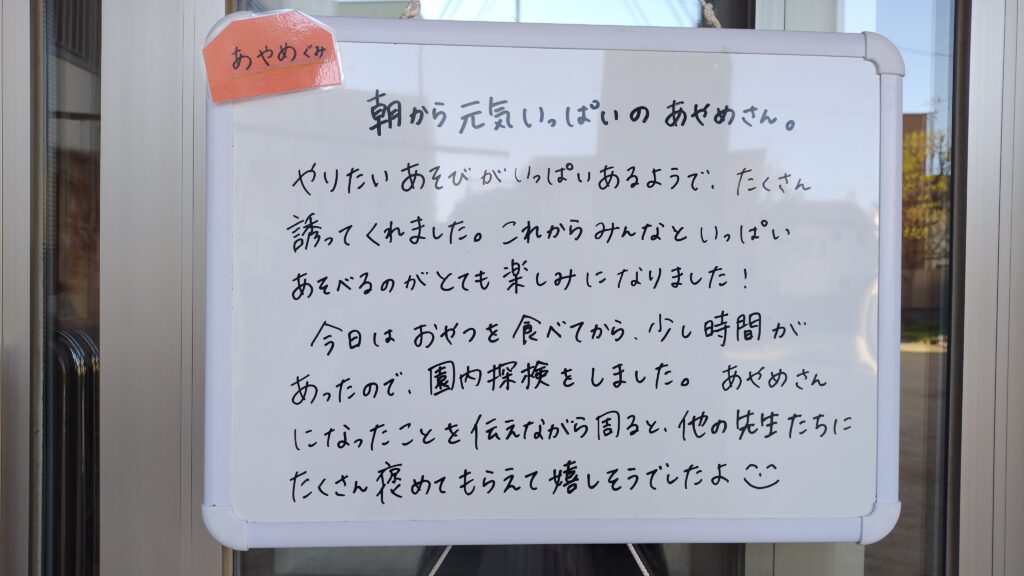 あやめぐみ
朝から元気いっぱいのあやめさん。
やりたいあそびがいっぱいあるようで、たくさん
誘ってくれました。これからみんなといっぱい
あそべるのがとても楽しみになりました!
今日はおやつを食べてから、少し時間が
あったので、園内探検をしました。あやめさん
になったことを伝えながら周ると、他の先生たちに
たくさん褒めてもらえて嬉しそうでしたよ